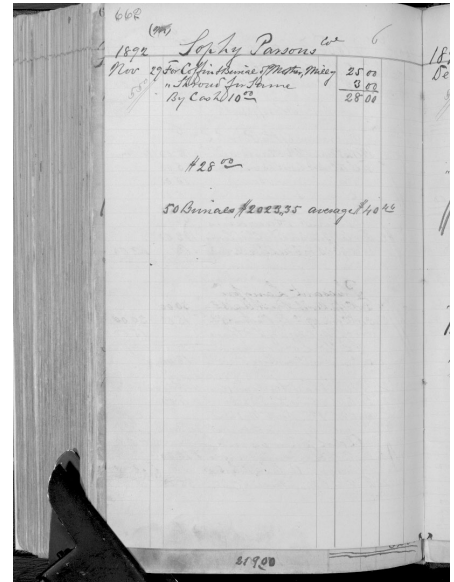 662
1892 Sophy Parsons Col 6
Nov 29 For Coffin & Burial of Mother, Milly 25 00
" " Shroud for Same 3 00
By Cash 10 00 28 00
$28 00
50 Burials $2023,35 average $40 46
21900
189
De